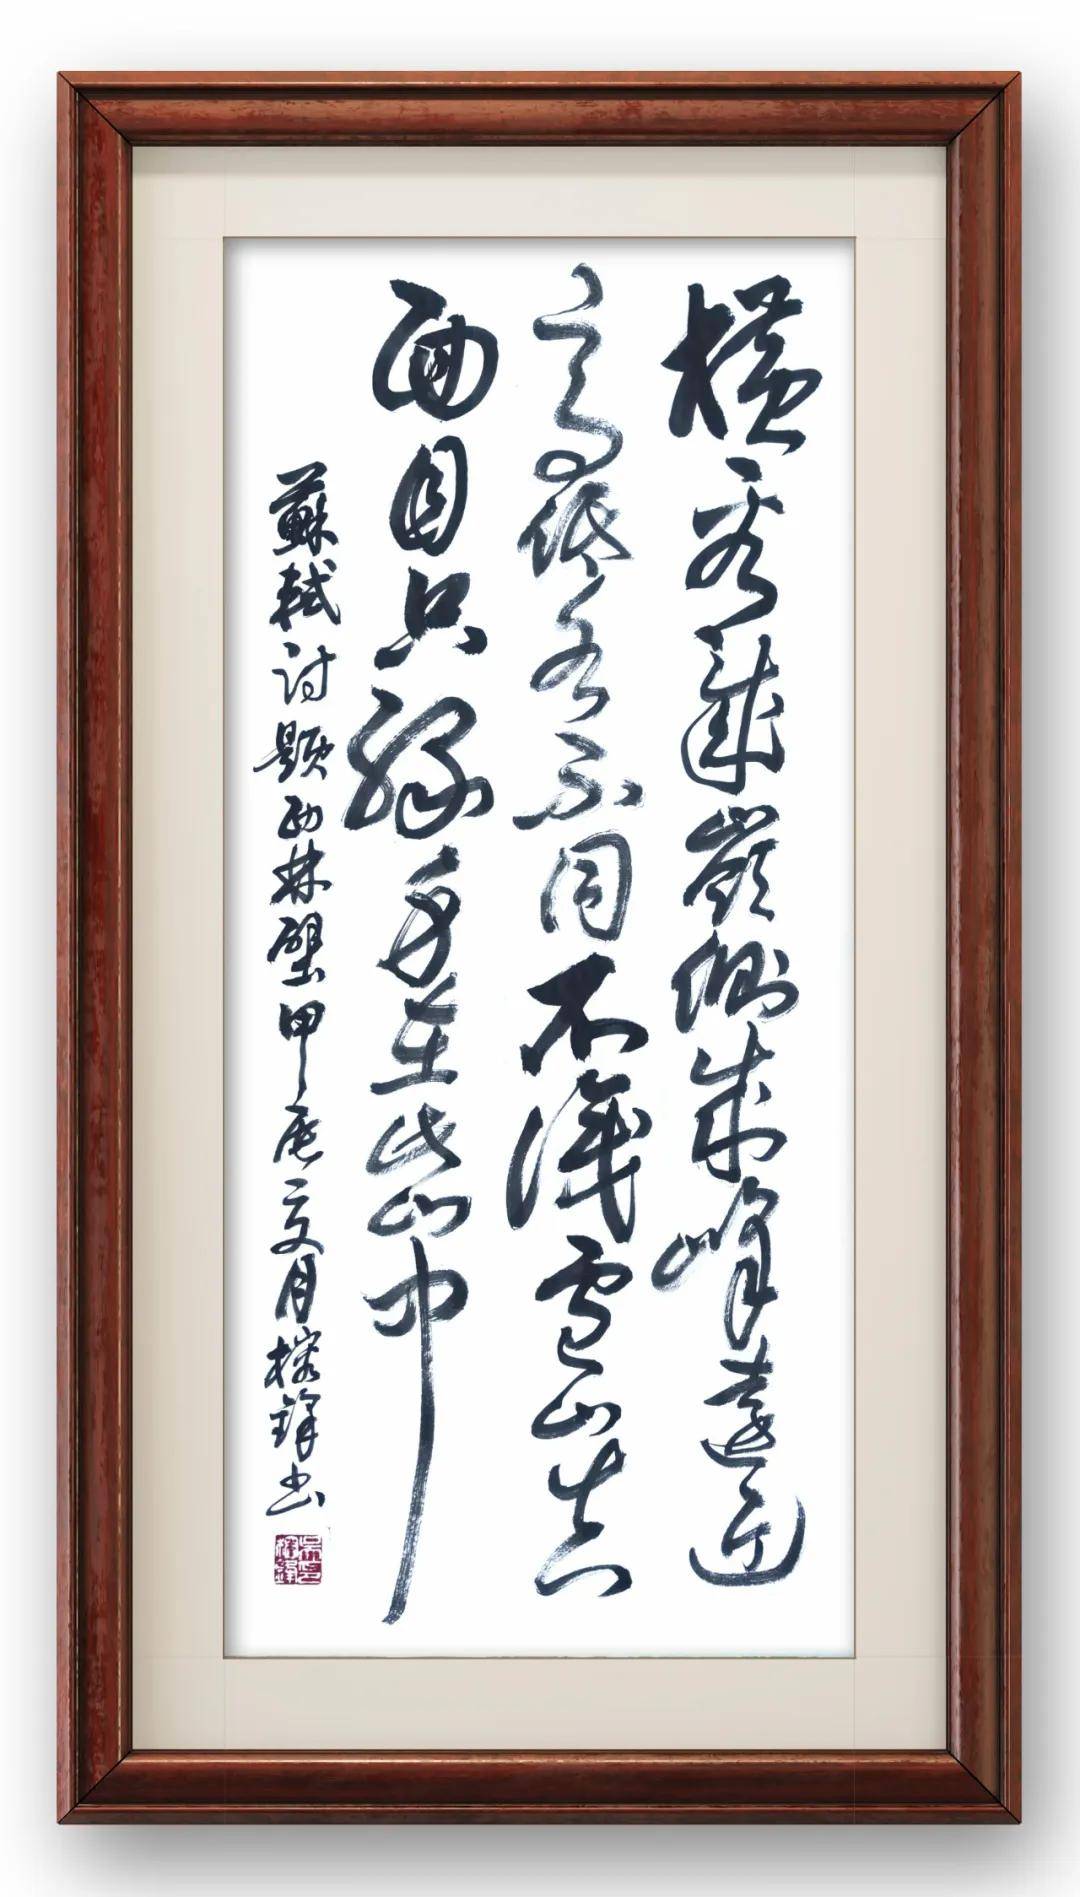 橫看成嶺側成峰遠近
高低各不同不識廬山真
面目只緣身在此山中
蘇軾詩題西林壁甲辰夏月榕鋒書